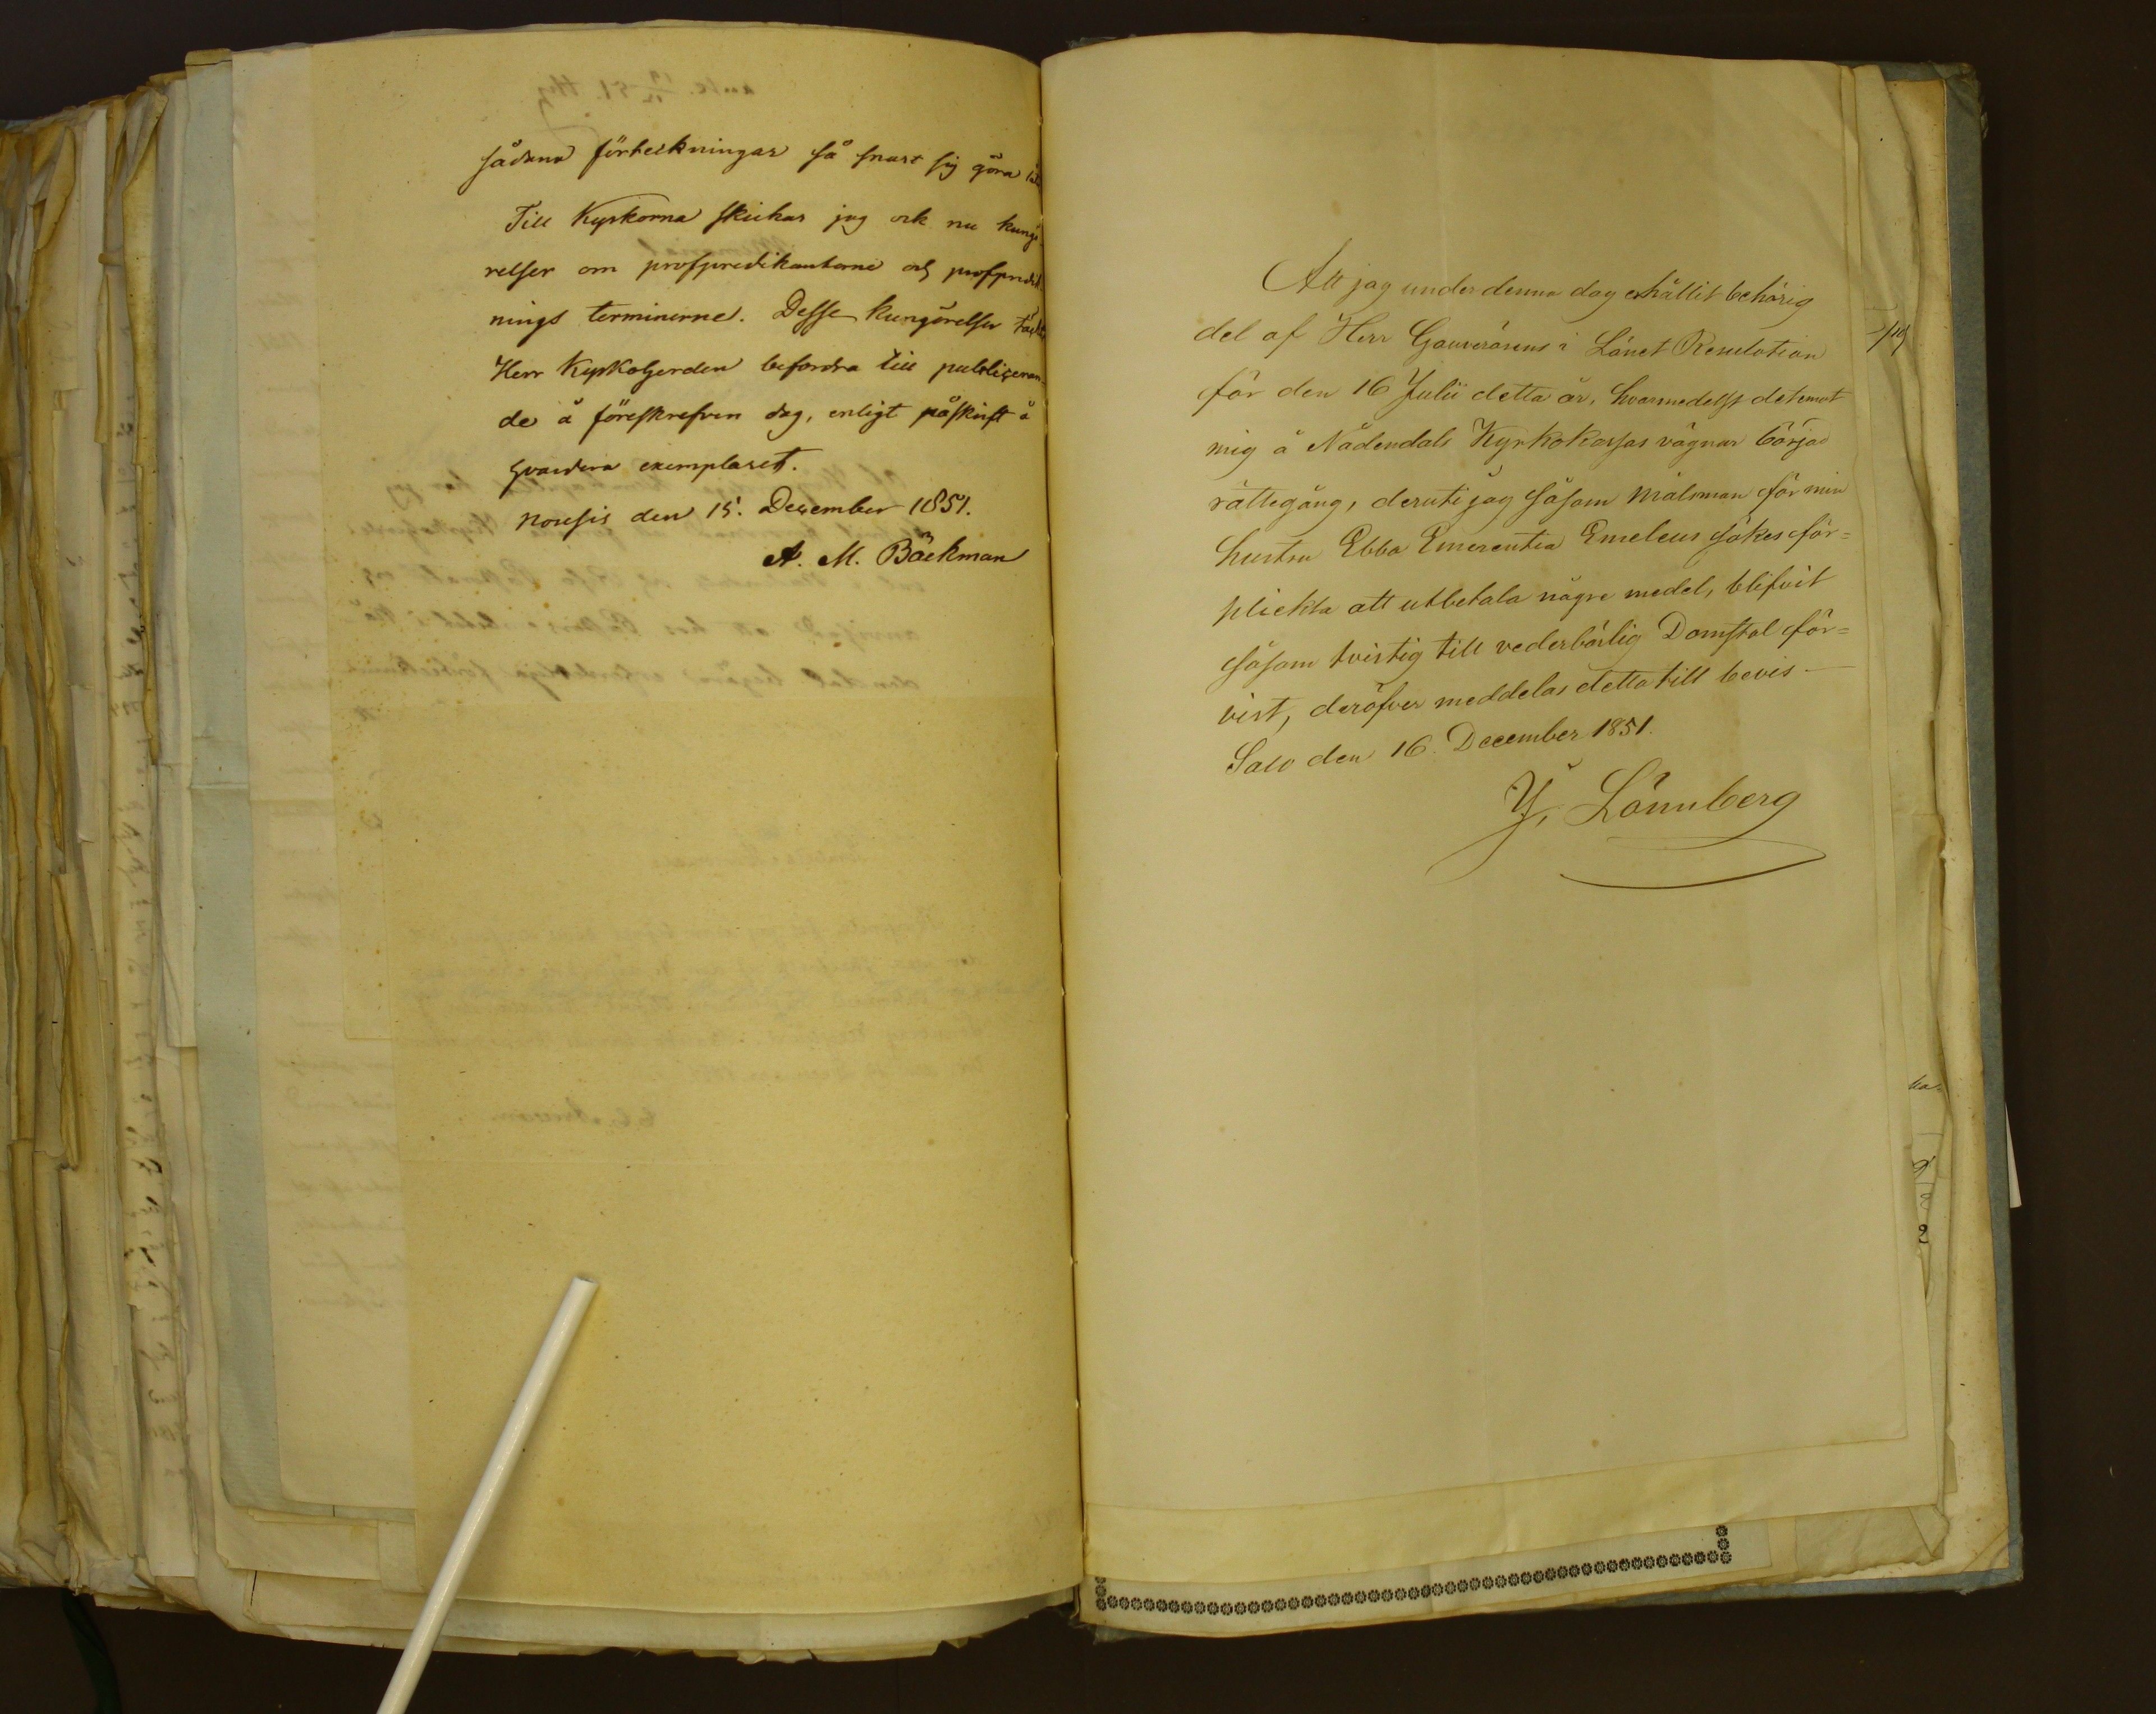 sådana förteckningar så snart sig göra
Till Kyrkorna skickar jag ock nu kungö-
relser om profpredikanterne och profpredik
nings terminerne. Desse kungörelser täcktes
Herr Kyrkoherden befordra till publiceran-
de å föreskrefven dag, enligt påskrift å
hvardera exemplaret.
Nousis den 15. December 1851.
A. M. Bäckman
Att jag under denna dag erhållit behörig
del af Herr Gouverörens i Länet Resulotion
för den 16 Julii detta år, hvarmedelst det emot
mig å Nådendals Kyrkokassas vägnar börjad
rättegång, deruti jag såsom målsman för min
hustru Ebba Emerentia Emeleus sökes för=
plickta att utbetala någre medel, blifvit
såsom tvistig till vederbörlig Domstol för=
vist, deröfver meddelas detta till bevis —
Salo den 16. December 1851.
Y. Lönnberg